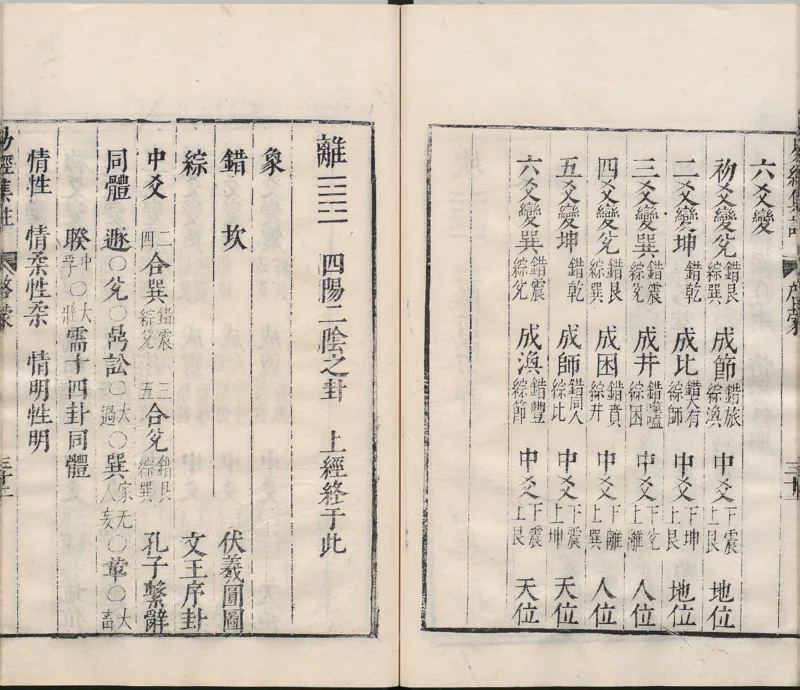 六爻變
初爻變兌錯艮綜巽 成節錯旅綜渙 中爻下震上艮 地位
二爻變坤錯乾 成比錯大有綜師 中爻下坤上艮 地位
三爻變巽錯震綜兌 成井錯噬嗑綜困 中爻下兌上離 人位
四爻變兌錯艮綜巽 成困錯賁綜井 中爻下離上巽 人位
五爻變坤錯乾 成師錯同人綜比 中爻下震上坤 天位
六爻變巽錯震綜兌 成渙錯豐綜節 中爻下震上艮 天位
離䷝ 四陽二陰之卦 上經終于此
象
錯 坎 伏羲圓圖
綜 文王序卦
中爻 二四合巽錯震綜兌 三五合兌錯艮綜巽 孔子繫辭
同體 遯○兌○鼎訟○大過○巽○家人无妄○革○大畜
睽中孚○大壯需十四卦同體
情性 情柔性柔 情明性明
易經集註 啓蒙